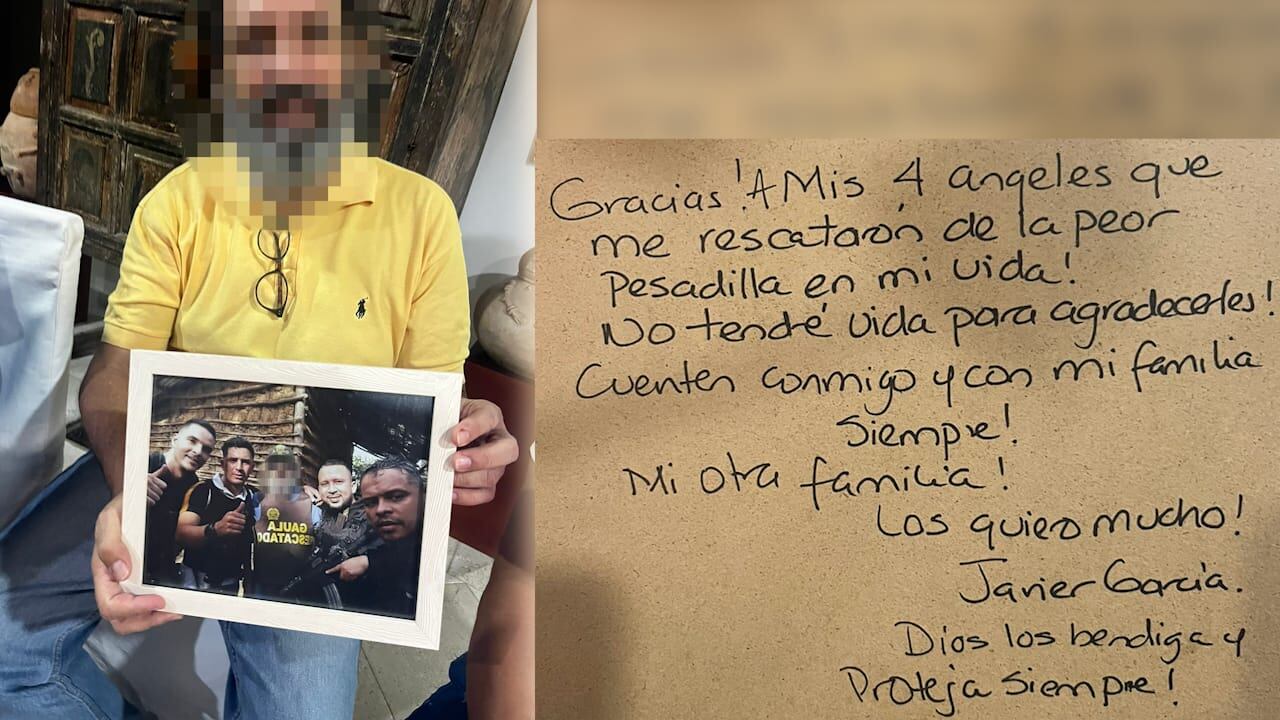 GAULA
RESCATADO
Gracias! A Mis 4 angeles que
me rescatarón de la peor
Pesadilla en mi vida!
No tendré vida para agradecerles!
Cuenten conmigo y con mi familia
Siempre!
Mi otra familia!
Los quiero mucho!
Javier García.
Dios los bendiga y
Proteja siempre!